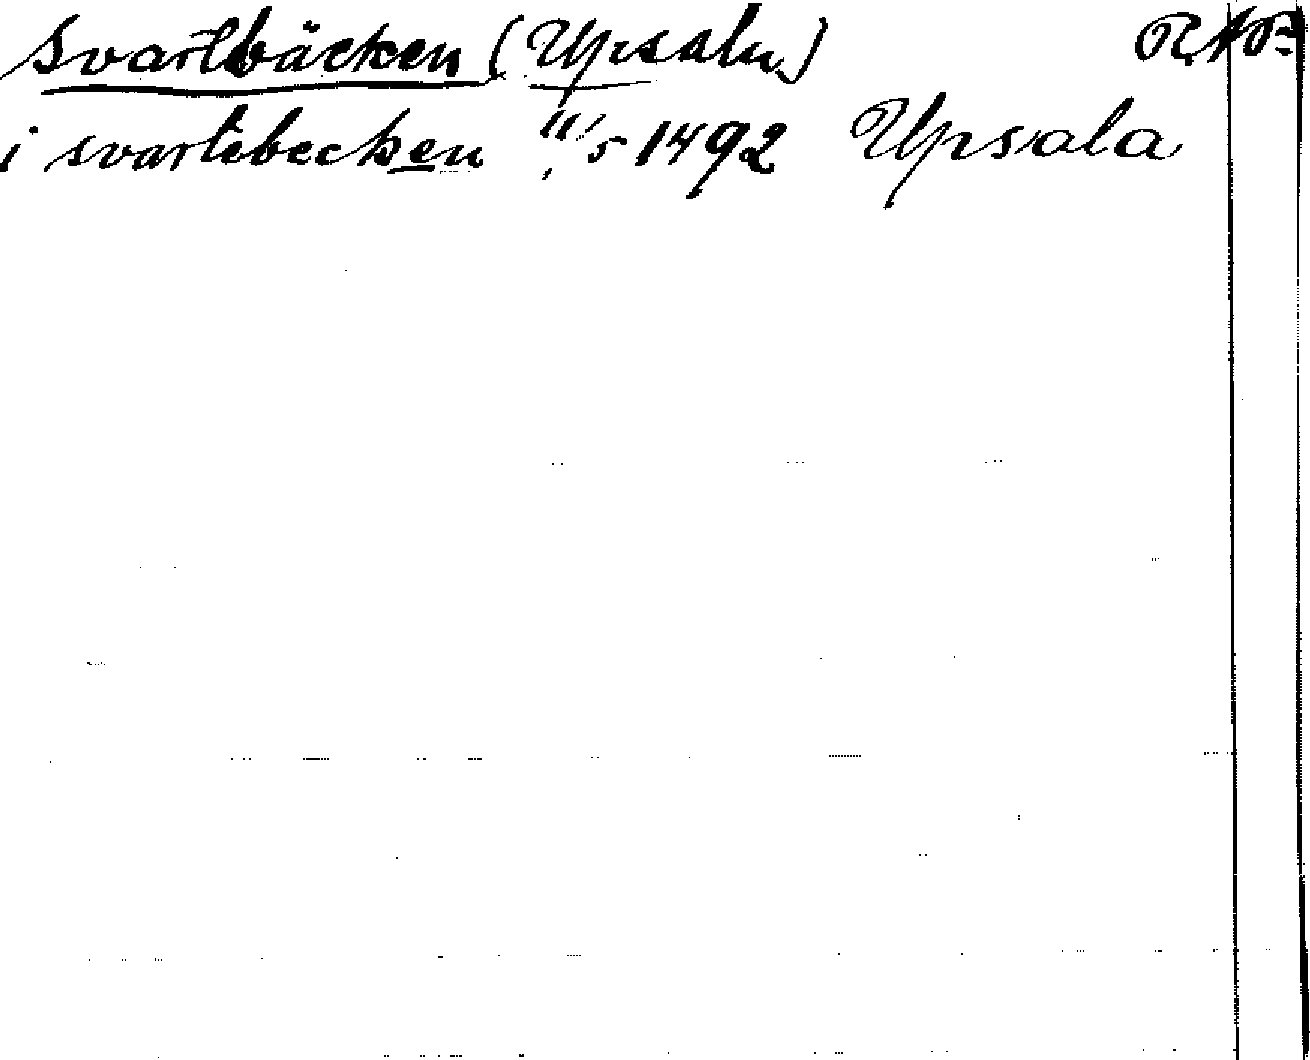 Svartbäcken (Upsala) RAP
i svartebecken 11/5 1492 Upsala